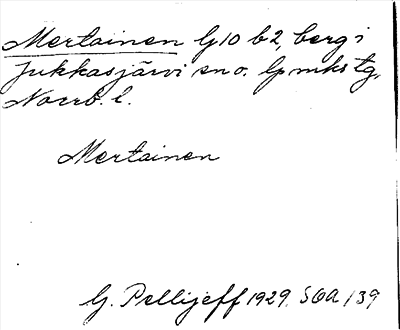 Mertainen G10 b2, berg i
Jukkasjärvi sn o. lpmkstg,
Norrb. l.
Mertainen
G. Pellijeff 1929. SOA /39